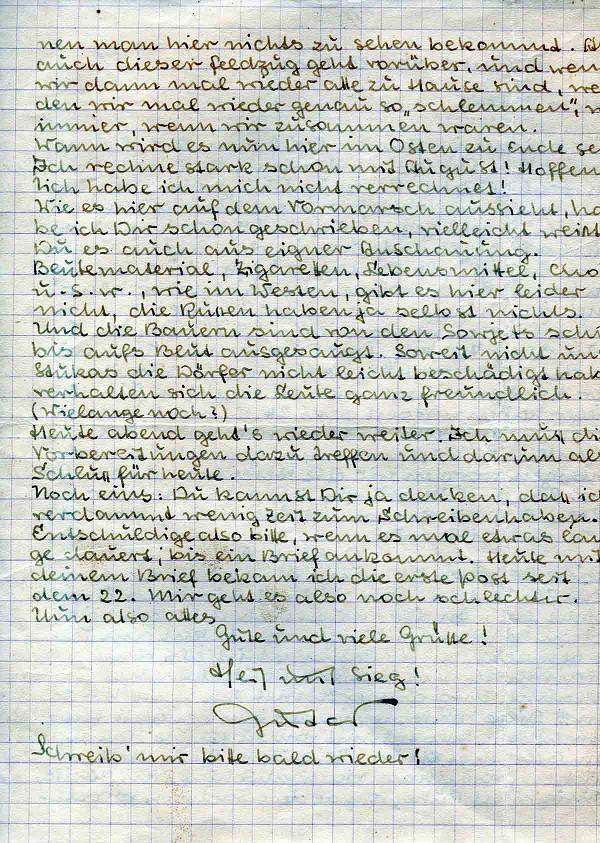 nen man hier nichts zu sehen bekommt.
auch dieser Feldzug geht vorüber, und wen
wir dann mal wieder alle zu Hause sind, we
den wir mal wieder genau so „schlemmen", w
immer, wenn wir zusammen waren.
Wann wird es nun hier im Osten zu Ende se
Ich rechne stark schon mit August! Hoffen
lich habe ich mich nicht verrechnet!
Wie es hier auf dem Vormarsch aussieht, ha
be ich Dir schon geschrieben, vielleicht weißt
Du es auch aus eigner Anschauung.
Beutematerial, Zigaretten, Lebensmittel, Cho
u.s.w., wie im Westen, gibt es hier leider
nicht, die Russen haben ja selbst nichts.
Und die Bauern sind von den Sowjets sch
bis aufs Blut ausgesaugt. Soweit nicht un
Stukas die Dörfer nicht leicht beschädigt hab
verhalten sich die Leute ganz freundlich.
(Wielange noch?)
Heute abend geht's wieder weiter. Ich muß di
Vorbereitungen dazu treffen und darum al
Schluß für heute.
Noch eins: Du kannst Dir ja denken, daß ic
verdammt wenig Zeit zum Schreiben haben.
Entschuldige also bitte, wenn es mal etwas lan
ge dauert, bis ein Brief ankommt. Heute mit
deinem Brief bekam ich die erste Post seit
dem 22. Mir geht es also noch schlechter.
Nun also alles
Gute und viele Grüße!
Heil und Sieg!
Schreib' mir bitte bald wieder!